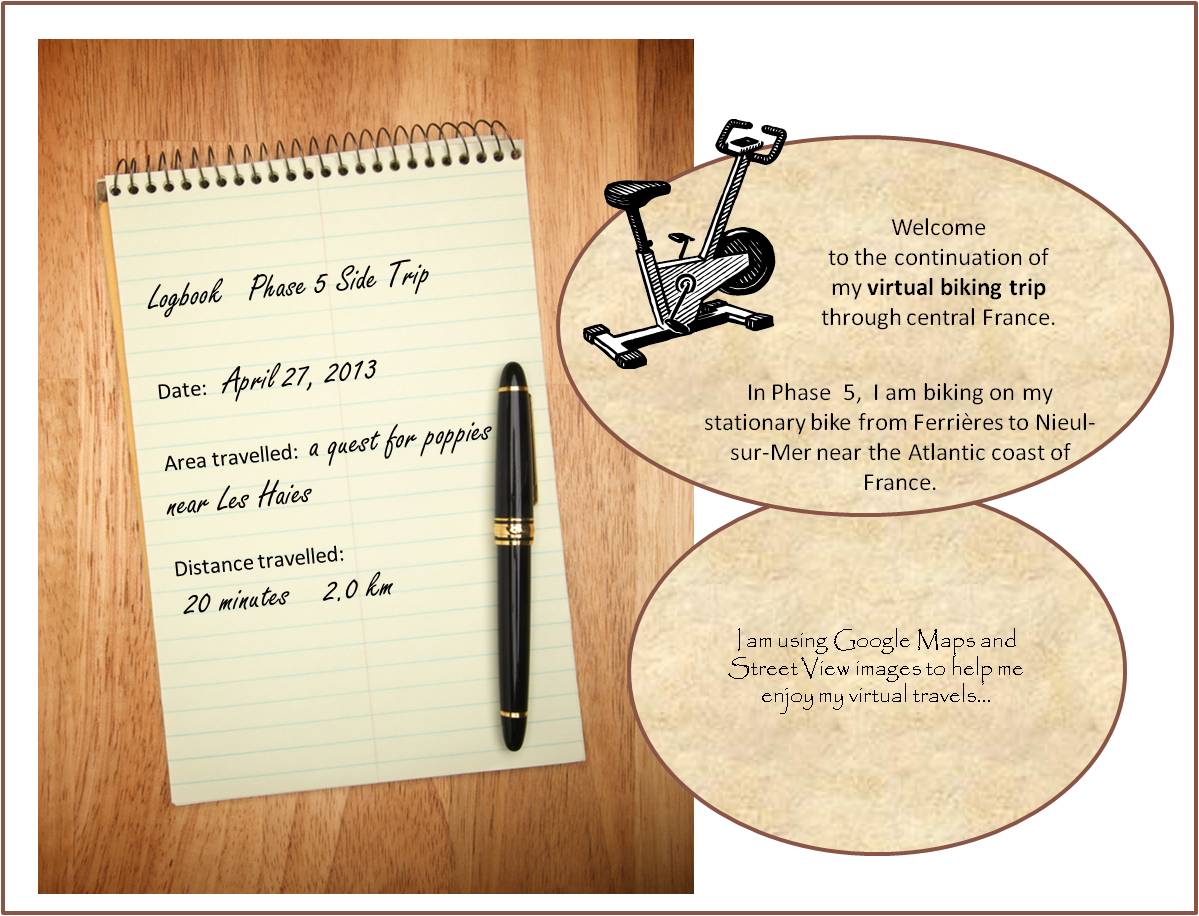 Logbook Phase 5 Side Trip
Date: April 27, 2013
Area travelled: a quest for poppies
near Les Haies
Distance travelled:
20 minutes 2.0 km
Welcome
to the continuation of
my virtual biking trip
through central France.
In Phase 5, I am biking on my
stationary bike from Ferrières to Nieul-
sur-Mer near the Atlantic coast of
France.
I am using Google Maps and
Street View images to help me
enjoy my virtual travels...